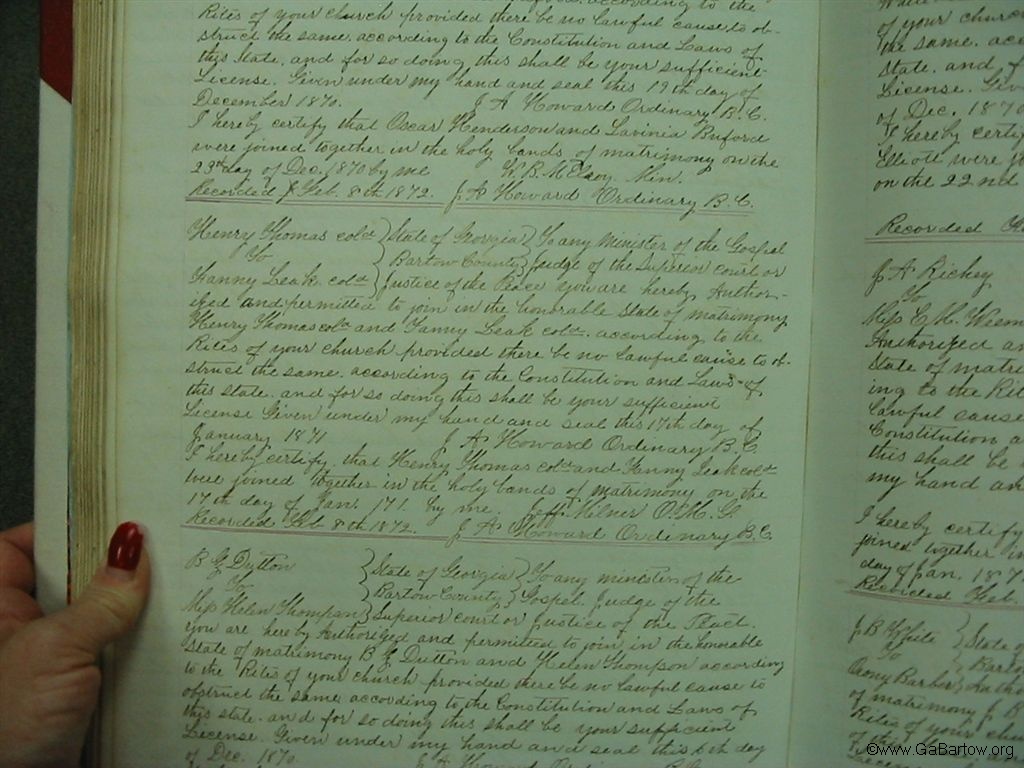 Rites of your church provided there be no lawful cause to ob-
struct the same. according to the Constitution and Laws of
this State, and for so doing this shall be your sufficient
License. Given under my hand and seal this 19th day of
December 1870. J A Howard Ordinary B. C.
I hereby certify that Oscar Henderson and Lavinia Buford
were joined together in the holy bands of matrimony on the
23rd day of Dec. 1870 by me W. R. McElroy Min.
Recorded Feb. 8th 1872. J A Howard Ordinary B. C.
Henry Thomas cold } State of Georgia } To any Minister of the Gospel
To } Bartow County } Judge of the Superior court or
Fanny Leak cold } Justice of the Peace you are hereby Author-
ized and permitted to join in the honorable state of matrimony
Henry Thomas cold and Fanny Leak cold. according to the
Rites of your church provided there be no lawful cause to ob-
struct the same. according to the Constitution and Laws of
this state. and for so doing this shall be your sufficient
License Given under my hand and seal this 17th day of
January 1871 J A Howard Ordinary B. C.
I hereby certify that Henry Thomas cold and Fanny Leak cold
were joined together in the holy bands of matrimony on the
17th day of Jan. 171. by me. Jeff. Milner O. M. G.
Recorded Feb 8th 1872. J A Howard Ordinary B. C.
B G Dutton } State of Georgia } To any minister of the
To } Bartow County } Gospel. Judge of the
Miss Helen Thompson } Superior court or Justice of the Peace.
you are hereby Authorized and permitted to join in the honorable
State of matrimony B G Dutton and Helen Thompson according
to the Rites of your church provided there be no lawful cause to
obstruct the same according to the Constitution and Laws of
this state. and for so doing this shall be your sufficient
License. Given under my hand and seal this 6th day
of Dec. 1870. J A Howard Ordinary B. C.
of your church
the same. acc
State. and f
License. Giv
of Dec. 1870
I hereby certify
Elliott were jo
on the 22nd
Recorded
J A Richey
To
Miss C. M.
Authorized an
State of matri
ing to the Rit
lawful cause
Constitution a
this shall be
my hand an
I hereby certify
joined together in
day of Jan. 187
Recorded Feb.
J B White } State of
To } Barto
Barber } Autho
of matrimony J. B
Rites of your chu
©www.GaBartow.org